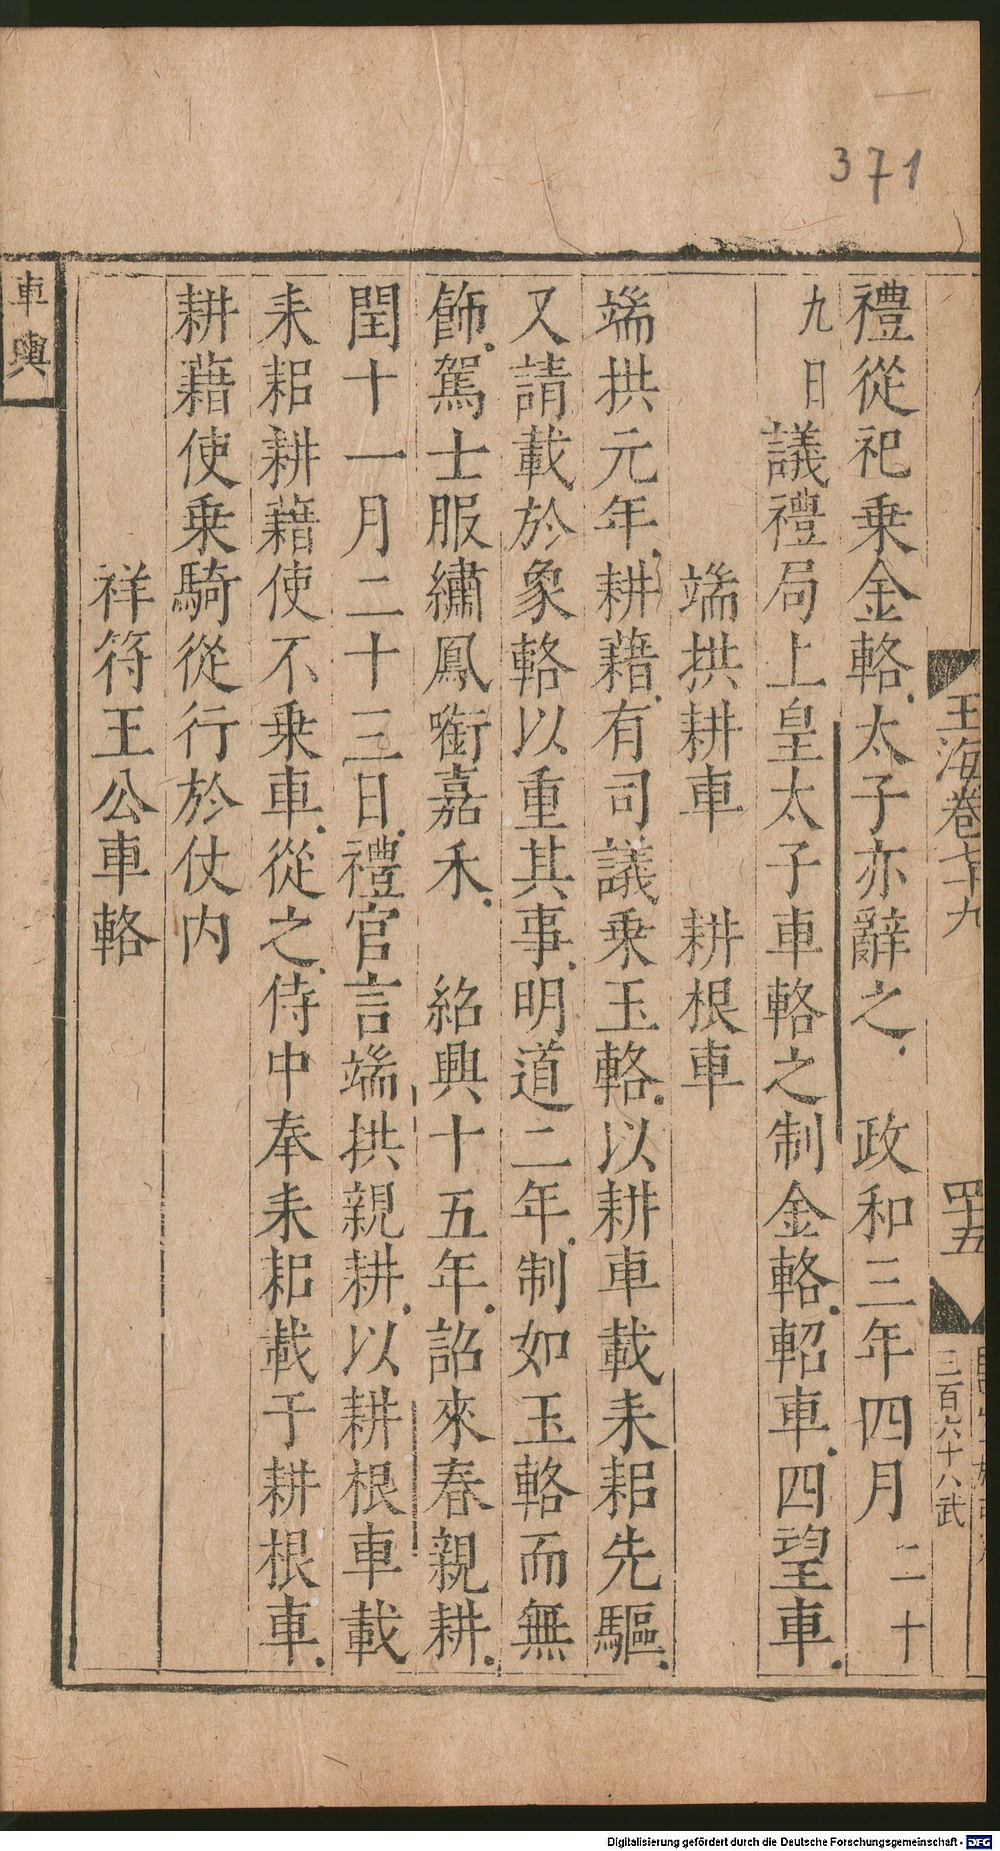 371
玉海卷七十九
四十五
三百六十八武
禮從祀乗金輅太子亦辭之 政和三年四月二十
九日議禮局上皇太子車輅之制金輅軺車四望車
端拱耕車 耕根車
端拱元年耕藉有司議乗玉輅以耕車載耒耜先驅
又請載於象輅以重其事明道二年制如玉輅而無
飾駕士服繡鳳銜嘉禾 紹興十五年詔來春親耕
閏十一月二十三日禮官言端拱親耕以耕根車載
耒耜耕藉使不乗車從之侍中奉耒耜載于耕根車
耕藉使乗騎從行於仗内
祥符王公車輅
車輿
Digitalisierung gefördert durch die Deutsche Forschungsgemeinschaft - DFG